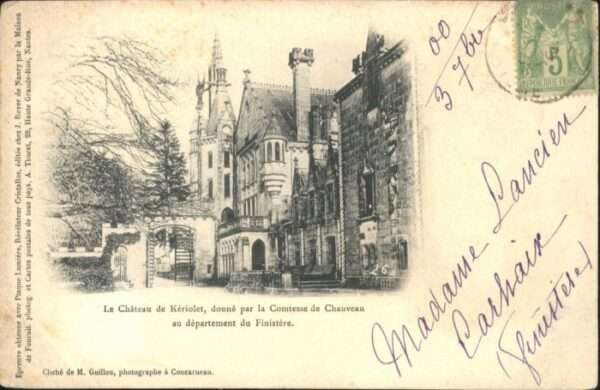 Epreuve obtenue avec Plaque Lumière, Révélateur Cristallos, éditée chez J. Royer de Nancy par la Maison
de Fournit. photog. et Cartes postales de tous pays, A. Thouet, 28, Haute Grande-Rue, Nantes.
Le Château de Kériolet, donné par la Comtesse de Chauveau
au département du Finistère.
Cliché de M. Guillou, photographe à Concarneau.
26
3 7bre 00
5
Madame Lancien
Carhaix
(Finistère)